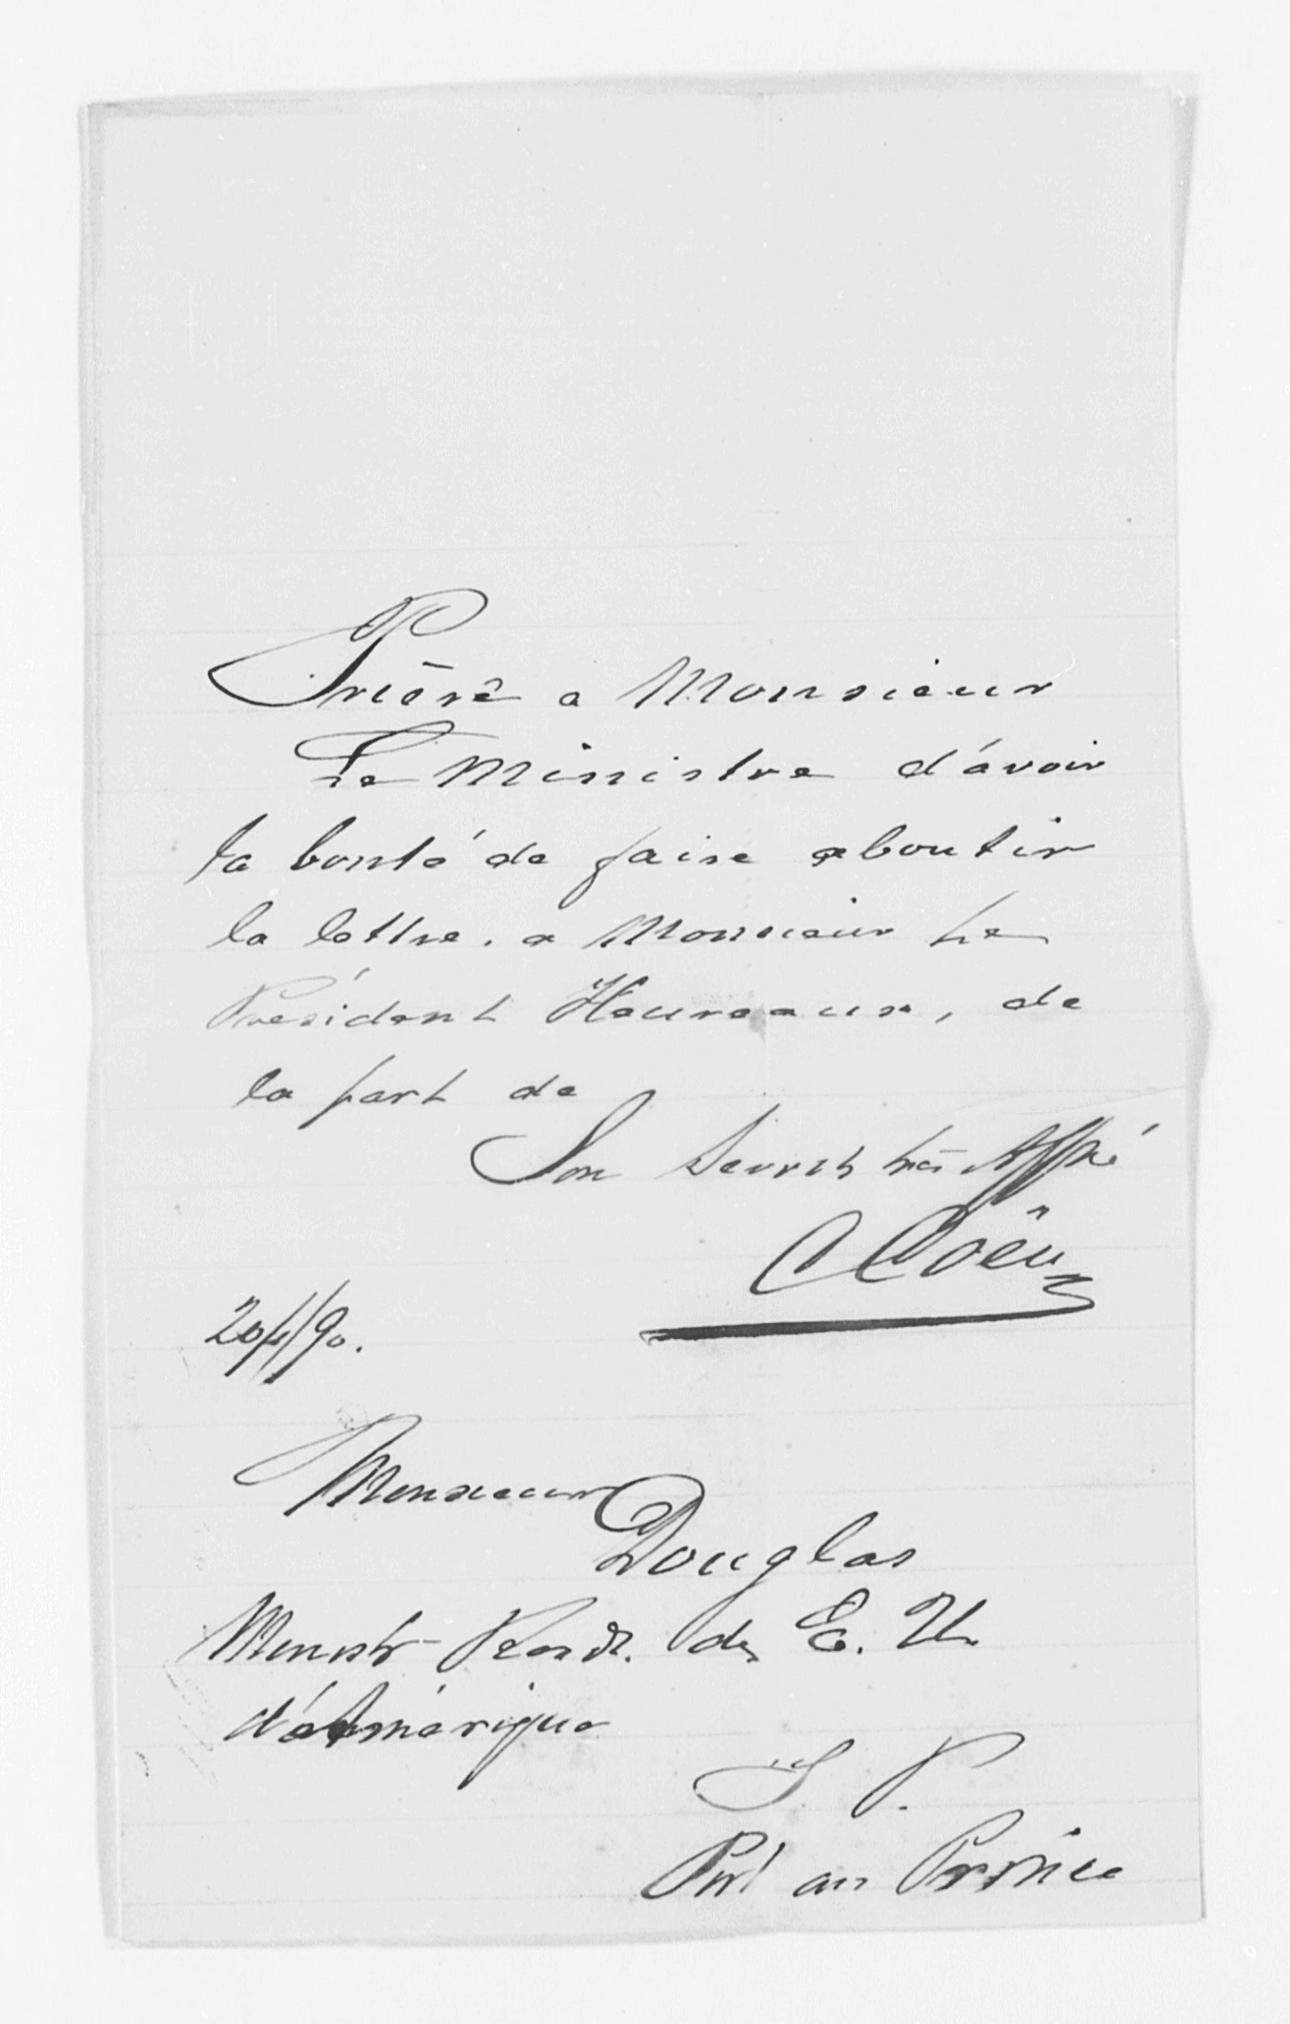 Prière a Monsieur
Le Ministre d'avoir
la bonté de faire aboutir
la lettre. a Monsieur Le
Président Heureaux, de
la part de
Son Servr très Affné
C Coën
20/4/90.
Monsieur
Douglas
Ministr Resdt. des E. U.
d'Amérique
S. P.
Port au Prince